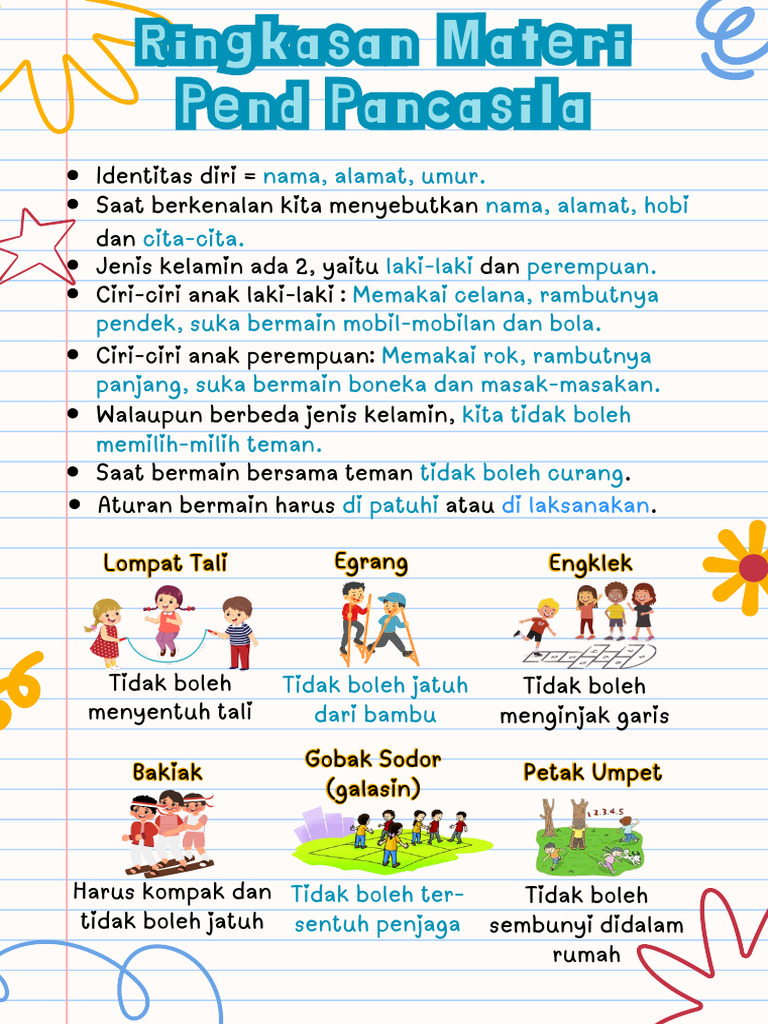 Ringkasan Materi
Pend Pancasila
• Identitas diri = nama, alamat, umur.
• Saat berkenalan kita menyebutkan nama, alamat, hobi
dan cita-cita.
• Jenis kelamin ada 2, yaitu laki-laki dan perempuan.
• Ciri-ciri anak laki-laki : Memakai celana, rambutnya
pendek, suka bermain mobil-mobilan dan bola.
• Ciri-ciri anak perempuan: Memakai rok, rambutnya
panjang, suka bermain boneka dan masak-masakan.
• Walaupun berbeda jenis kelamin, kita tidak boleh
memilih-milih teman.
• Saat bermain bersama teman tidak boleh curang.
• Aturan bermain harus di patuhi atau di laksanakan.
Lompat Tali
Tidak boleh
menyentuh tali
Egrang
Tidak boleh jatuh
dari bambu
Engklek
Tidak boleh
menginjak garis
Bakiak
Harus kompak dan
tidak boleh jatuh
Gobak Sodor
(galasin)
Tidak boleh ter-
sentuh penjaga
Petak Umpet
1 2 3 4 5
Tidak boleh
sembunyi didalam
rumah